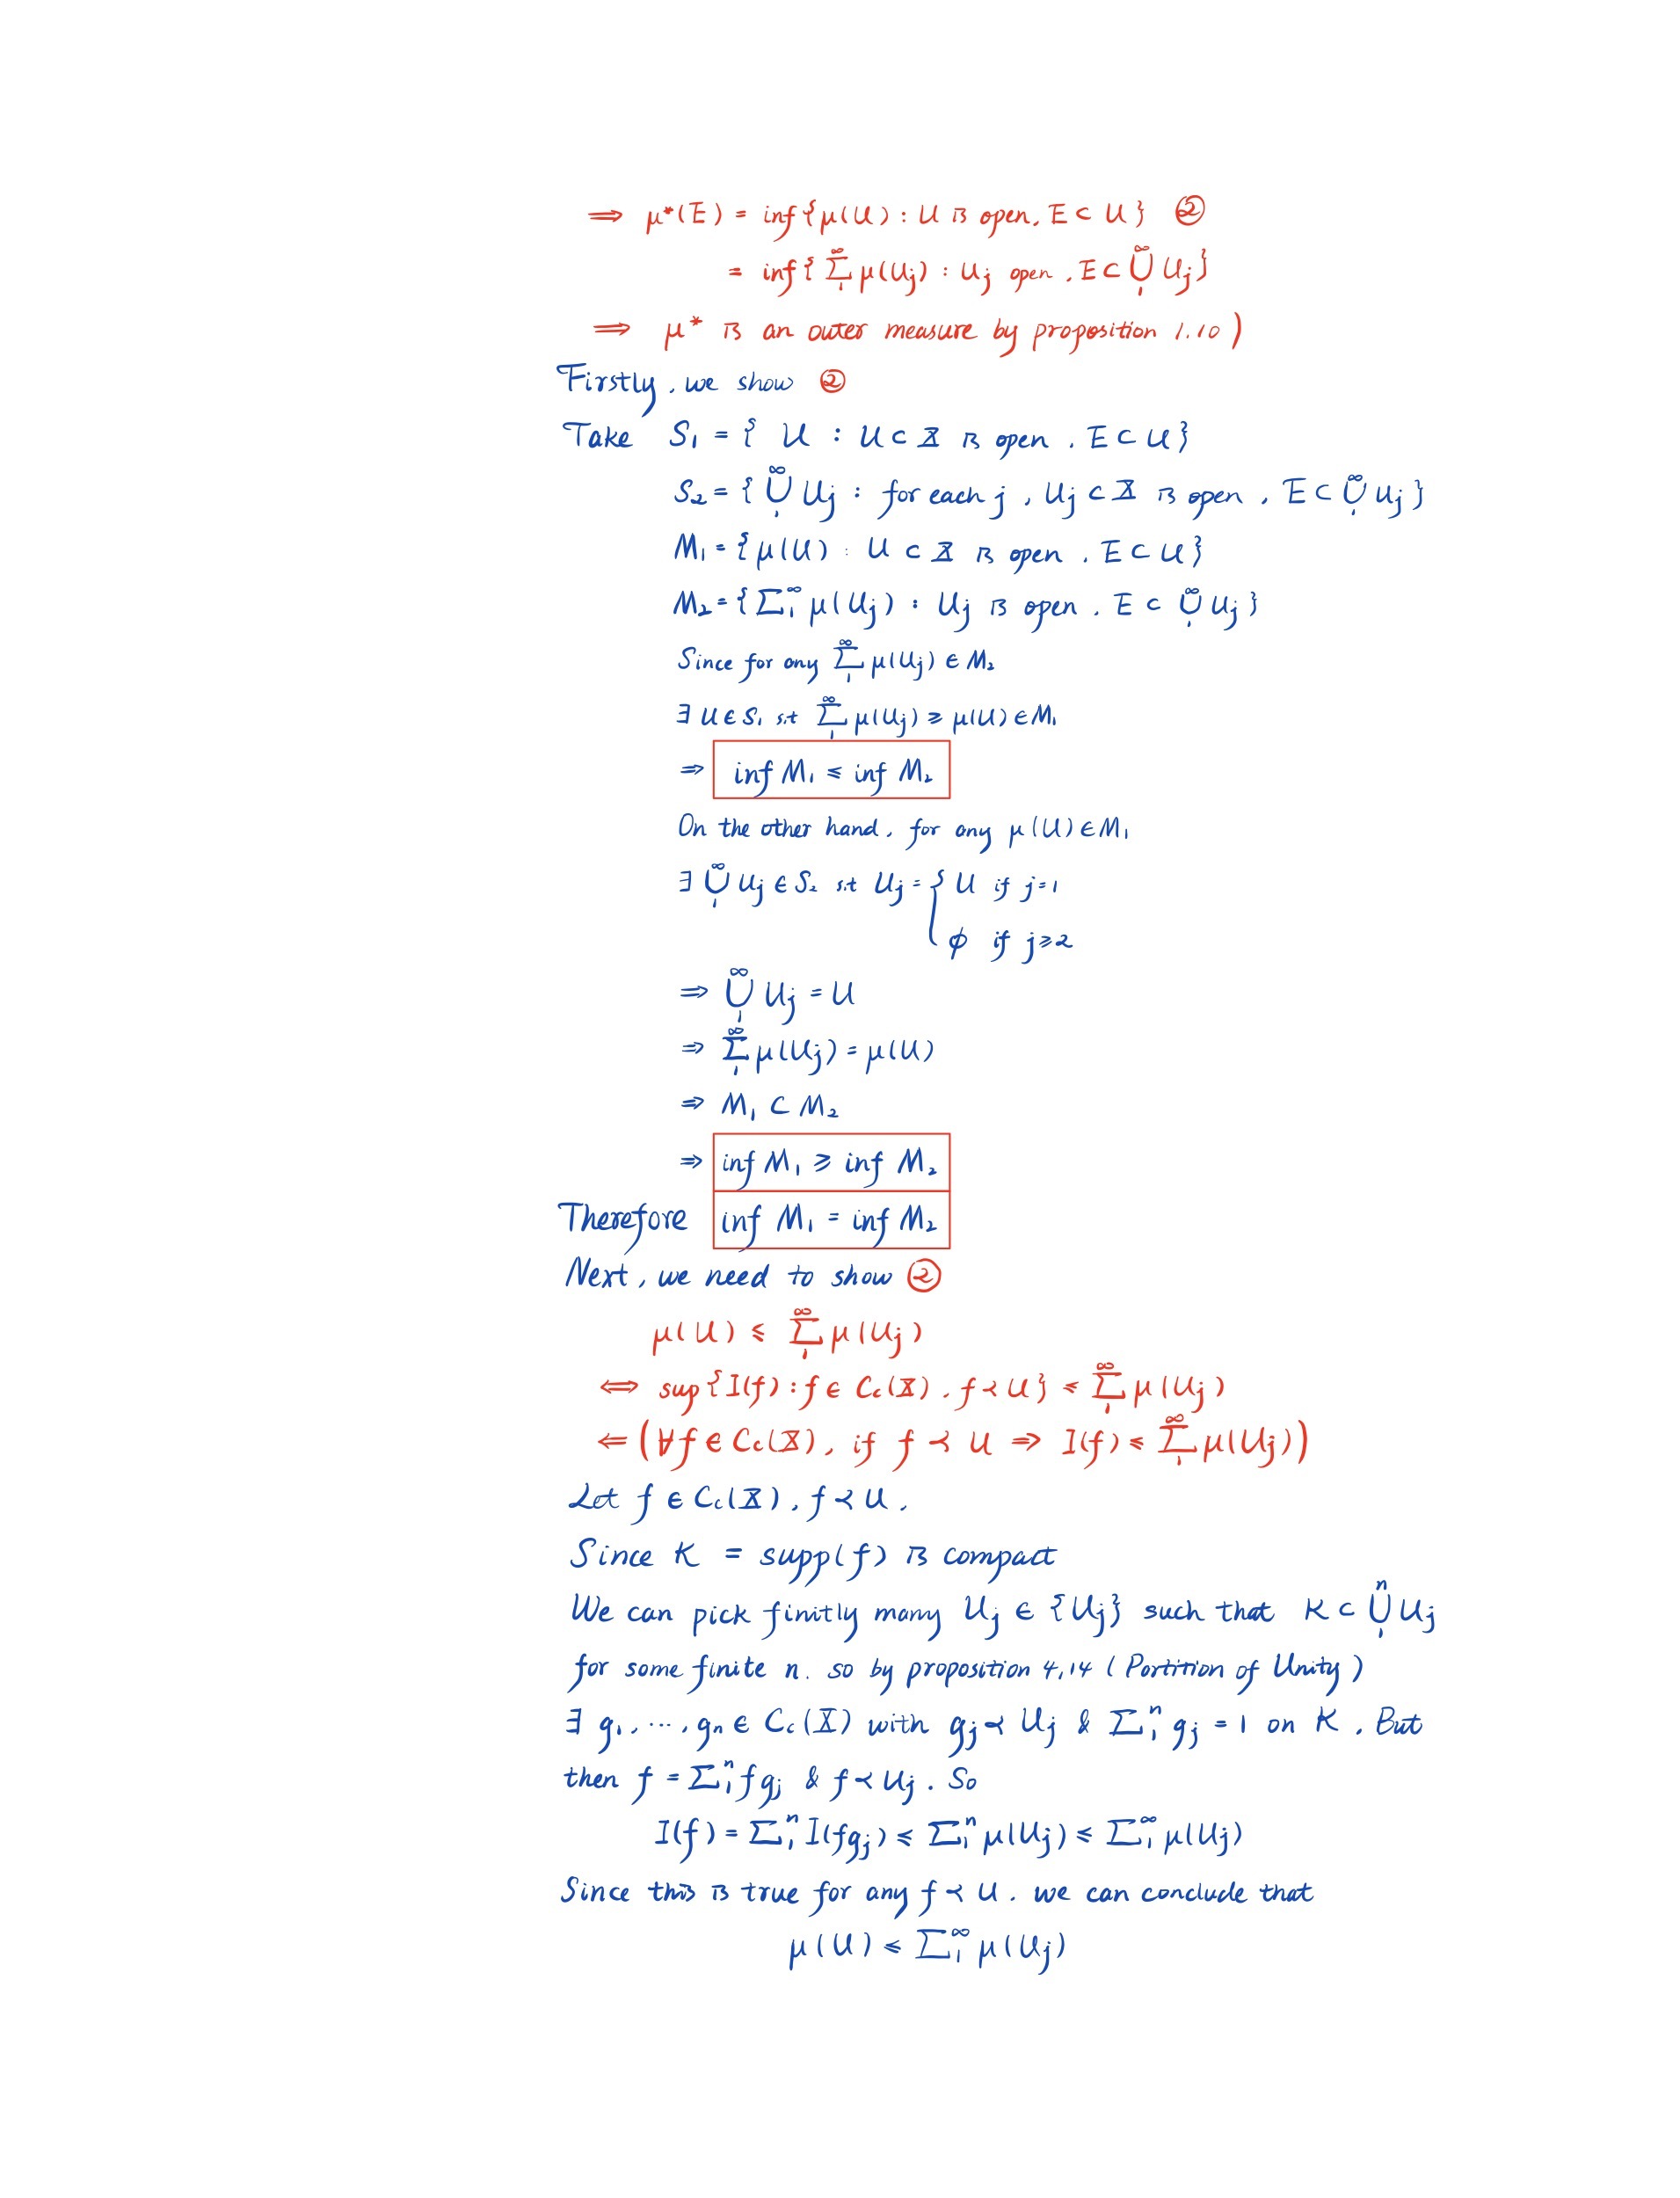 ⇒ μ*(E) = inf{μ(U) : U is open, E ⊂ U} ②
= inf{ ∑₁^∞ μ(Uj) : Uj open, E ⊂ ⋃₁^∞ Uj }
⇒ μ* is an outer measure by proposition 1.10 )
Firstly, we show ②
Take S₁ = { U : U ⊂ X is open, E ⊂ U }
S₂ = { ⋃₁^∞ Uj : for each j, Uj ⊂ X is open, E ⊂ ⋃₁^∞ Uj }
M₁ = { μ(U) : U ⊂ X is open, E ⊂ U }
M₂ = { ∑₁^∞ μ(Uj) : Uj is open, E ⊂ ⋃₁^∞ Uj }
Since for any ∑₁^∞ μ(Uj) ∈ M₂
∃ U ∈ S₁ s.t ∑₁^∞ μ(Uj) ⩾ μ(U) ∈ M₁
⇒ inf M₁ ⩽ inf M₂
On the other hand, for any μ(U) ∈ M₁
∃ ⋃₁^∞ Uj ∈ S₂ s.t Uj = { U if j=1
ϕ if j⩾2
⇒ ⋃₁^∞ Uj = U
⇒ ∑₁^∞ μ(Uj) = μ(U)
⇒ M₁ ⊂ M₂
⇒ inf M₁ ⩾ inf M₂
Therefore inf M₁ = inf M₂
Next, we need to show ②
μ(U) ⩽ ∑₁^∞ μ(Uj)
⇔ sup{I(f) : f ∈ Cc(X), f ≺ U} ⩽ ∑₁^∞ μ(Uj)
⇐ (∀f ∈ Cc(X), if f ≺ U ⇒ I(f) ⩽ ∑₁^∞ μ(Uj))
Let f ∈ Cc(X), f ≺ U,
Since K = supp(f) is compact
We can pick finitly many Uj ∈ {Uj} such that K ⊂ ⋃₁^n Uj
for some finite n. so by proposition 4.14 ( Portition of Unity )
∃ g₁, ⋯, gn ∈ Cc(X) with gj ≺ Uj & ∑₁^n gj = 1 on K. But
then f = ∑₁^n fgj & f ≺ Uj. So
I(f) = ∑₁^n I(fgj) ⩽ ∑₁^n μ(Uj) ⩽ ∑₁^∞ μ(Uj)
Since this is true for any f ≺ U. we can conclude that
μ(U) ⩽ ∑₁^∞ μ(Uj)